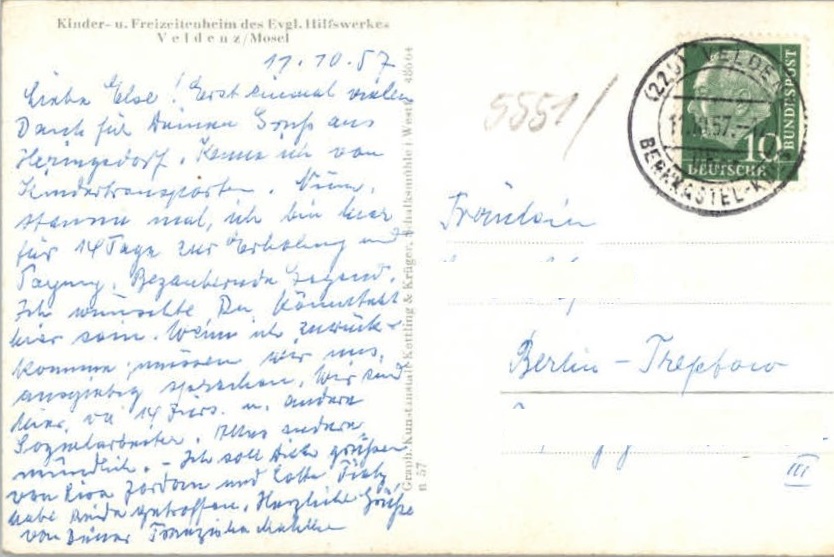 Kinder- u. Freizeitenheim des Evgl. Hilfswerkes
Veldenz/Mosel
11.10.57
Liebe Else! Erst einmal vielen
Dank für Deinen Gruß aus
Heringsdorf. Kenne ich von
Kindertransporten. Nun,
staune mal, ich bin hier
für 14 Tage zur Erholung und
Tagung. Bezaubernde Gegend.
Ich wünschte Du könntest
hier sein. Wenn ich zurück-
komme, müssen wir uns,
ausgiebig sprechen. Wir sind
hier, 14 Fürs. u. andere
Sozialarbeiter. Alles andere
mündlich. - Ich soll Dich grüßen
von Lisa Jordan und Lotte
habe beide getroffen. Herzliche Grüße
von Deiner Franziska
Graph. Kunstanstalt Kettling & Krüger, Schalksmühle i. Westf.
n 57
5551/
(22b) VELDENZ
11.10.57
BERNKASTEL-
10
DEUTSCHE
BUNDESPOST
Fräulein
Berlin - Treptow
III